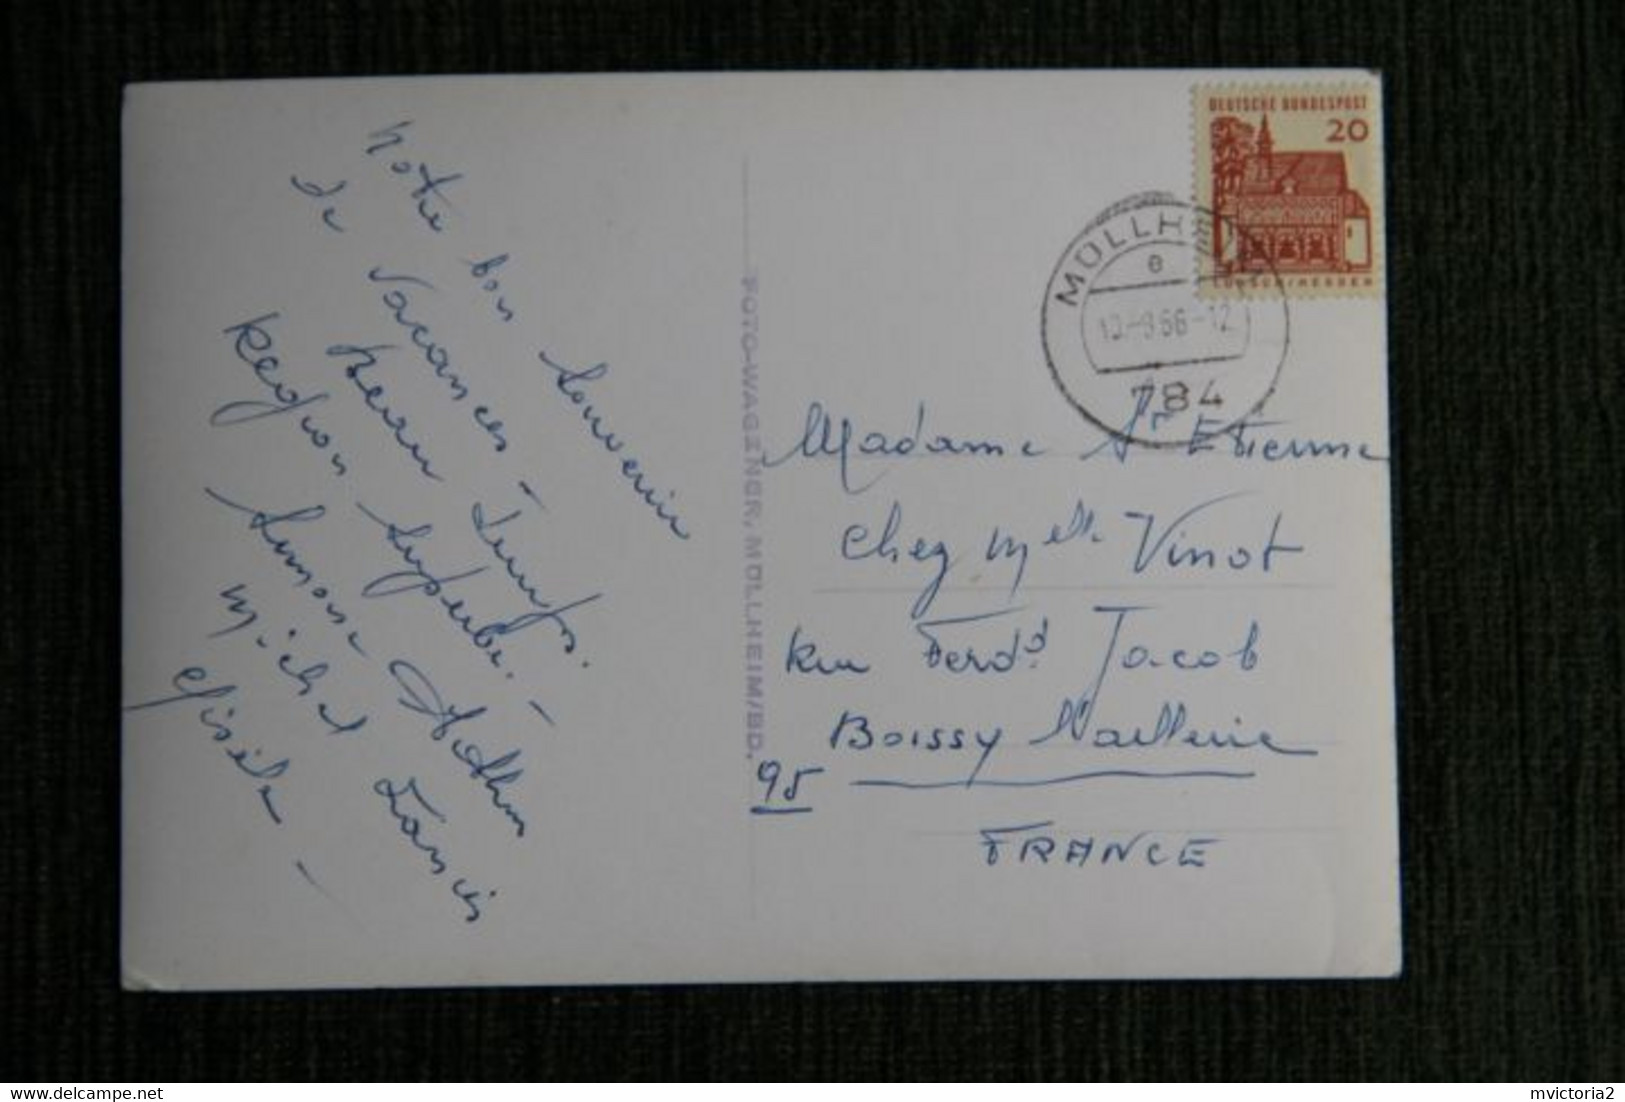 Notre bon Souvenir
de Vacances -
beau Temps.
Région Superbe. -
Simone
Michel Francis
Gisèle -
FOTO-WAGENER, MÜLLHEIM/BD.
DEUTSCHE BUNDESPOST
20
LORSCH/HESSEN
MÜLLHEIM
e
10.-9.66-12
784
Madame St Etienne
Chez Melle Vinot
Rue Ferdd Jacob
Boissy
95
FRANCE
delcampe.net
mvictoria2